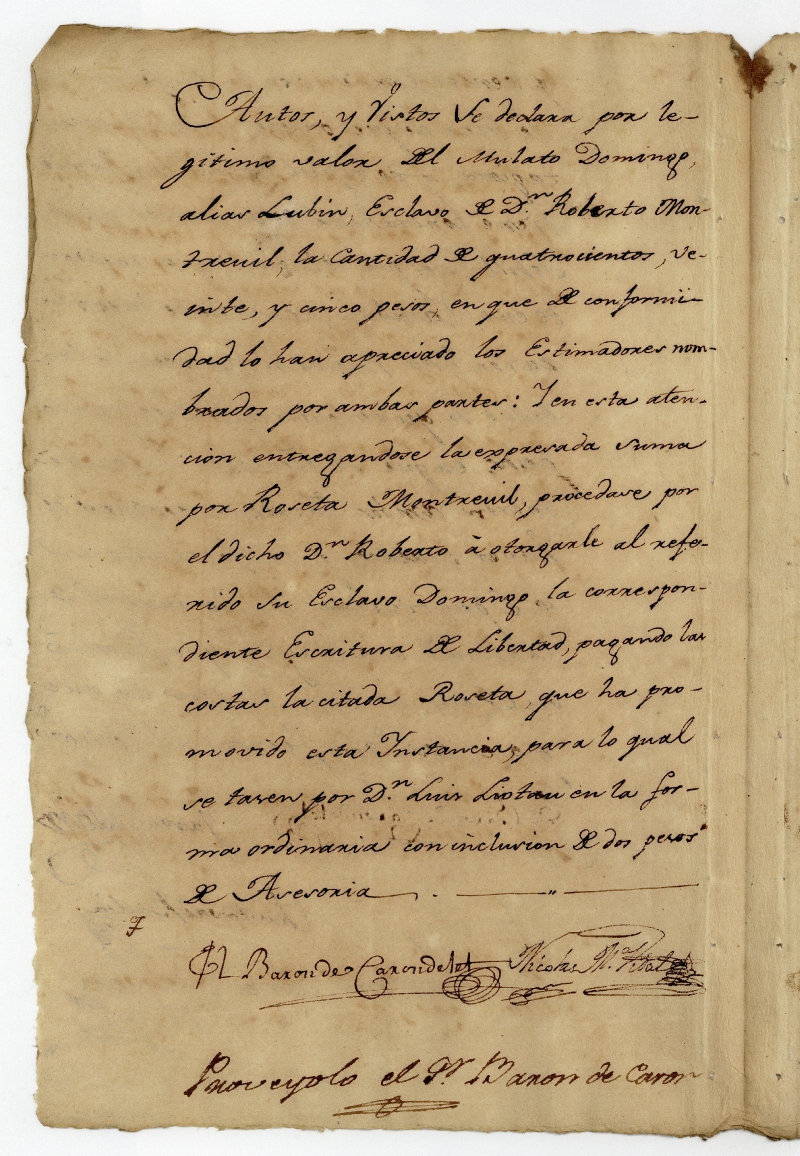 Autos, y Vistos Se declara por le-
gitimo valor del Mulato Domingo,
alias Lubin, Esclavo de Dn. Roberto Mon-
treuil, la Cantidad de quatrocientos, ve-
inte, y cinco pesos, en que de conformi-
dad lo han apreciado los Estimadores nom-
brados por ambas partes: Y en esta aten-
cion entregandose la expresada suma
por Roseta Montreuil, procedase por
el dicho Dn. Roberto à otorgarle al refe-
rido su Esclavo Domingo, la correspon-
diente Escritura de Libertad, pagando las
costas la citada Roseta, que ha pro-
movido esta Instancia, para lo qual
se tasen por Dn. Luis Liotau en la for-
ma ordinaria con inclusion de dos pesos
de Asesoria
El Baron de Carondelet Nicolas Ma. Vidal
Proveyolo el Sr. Baron de Caron